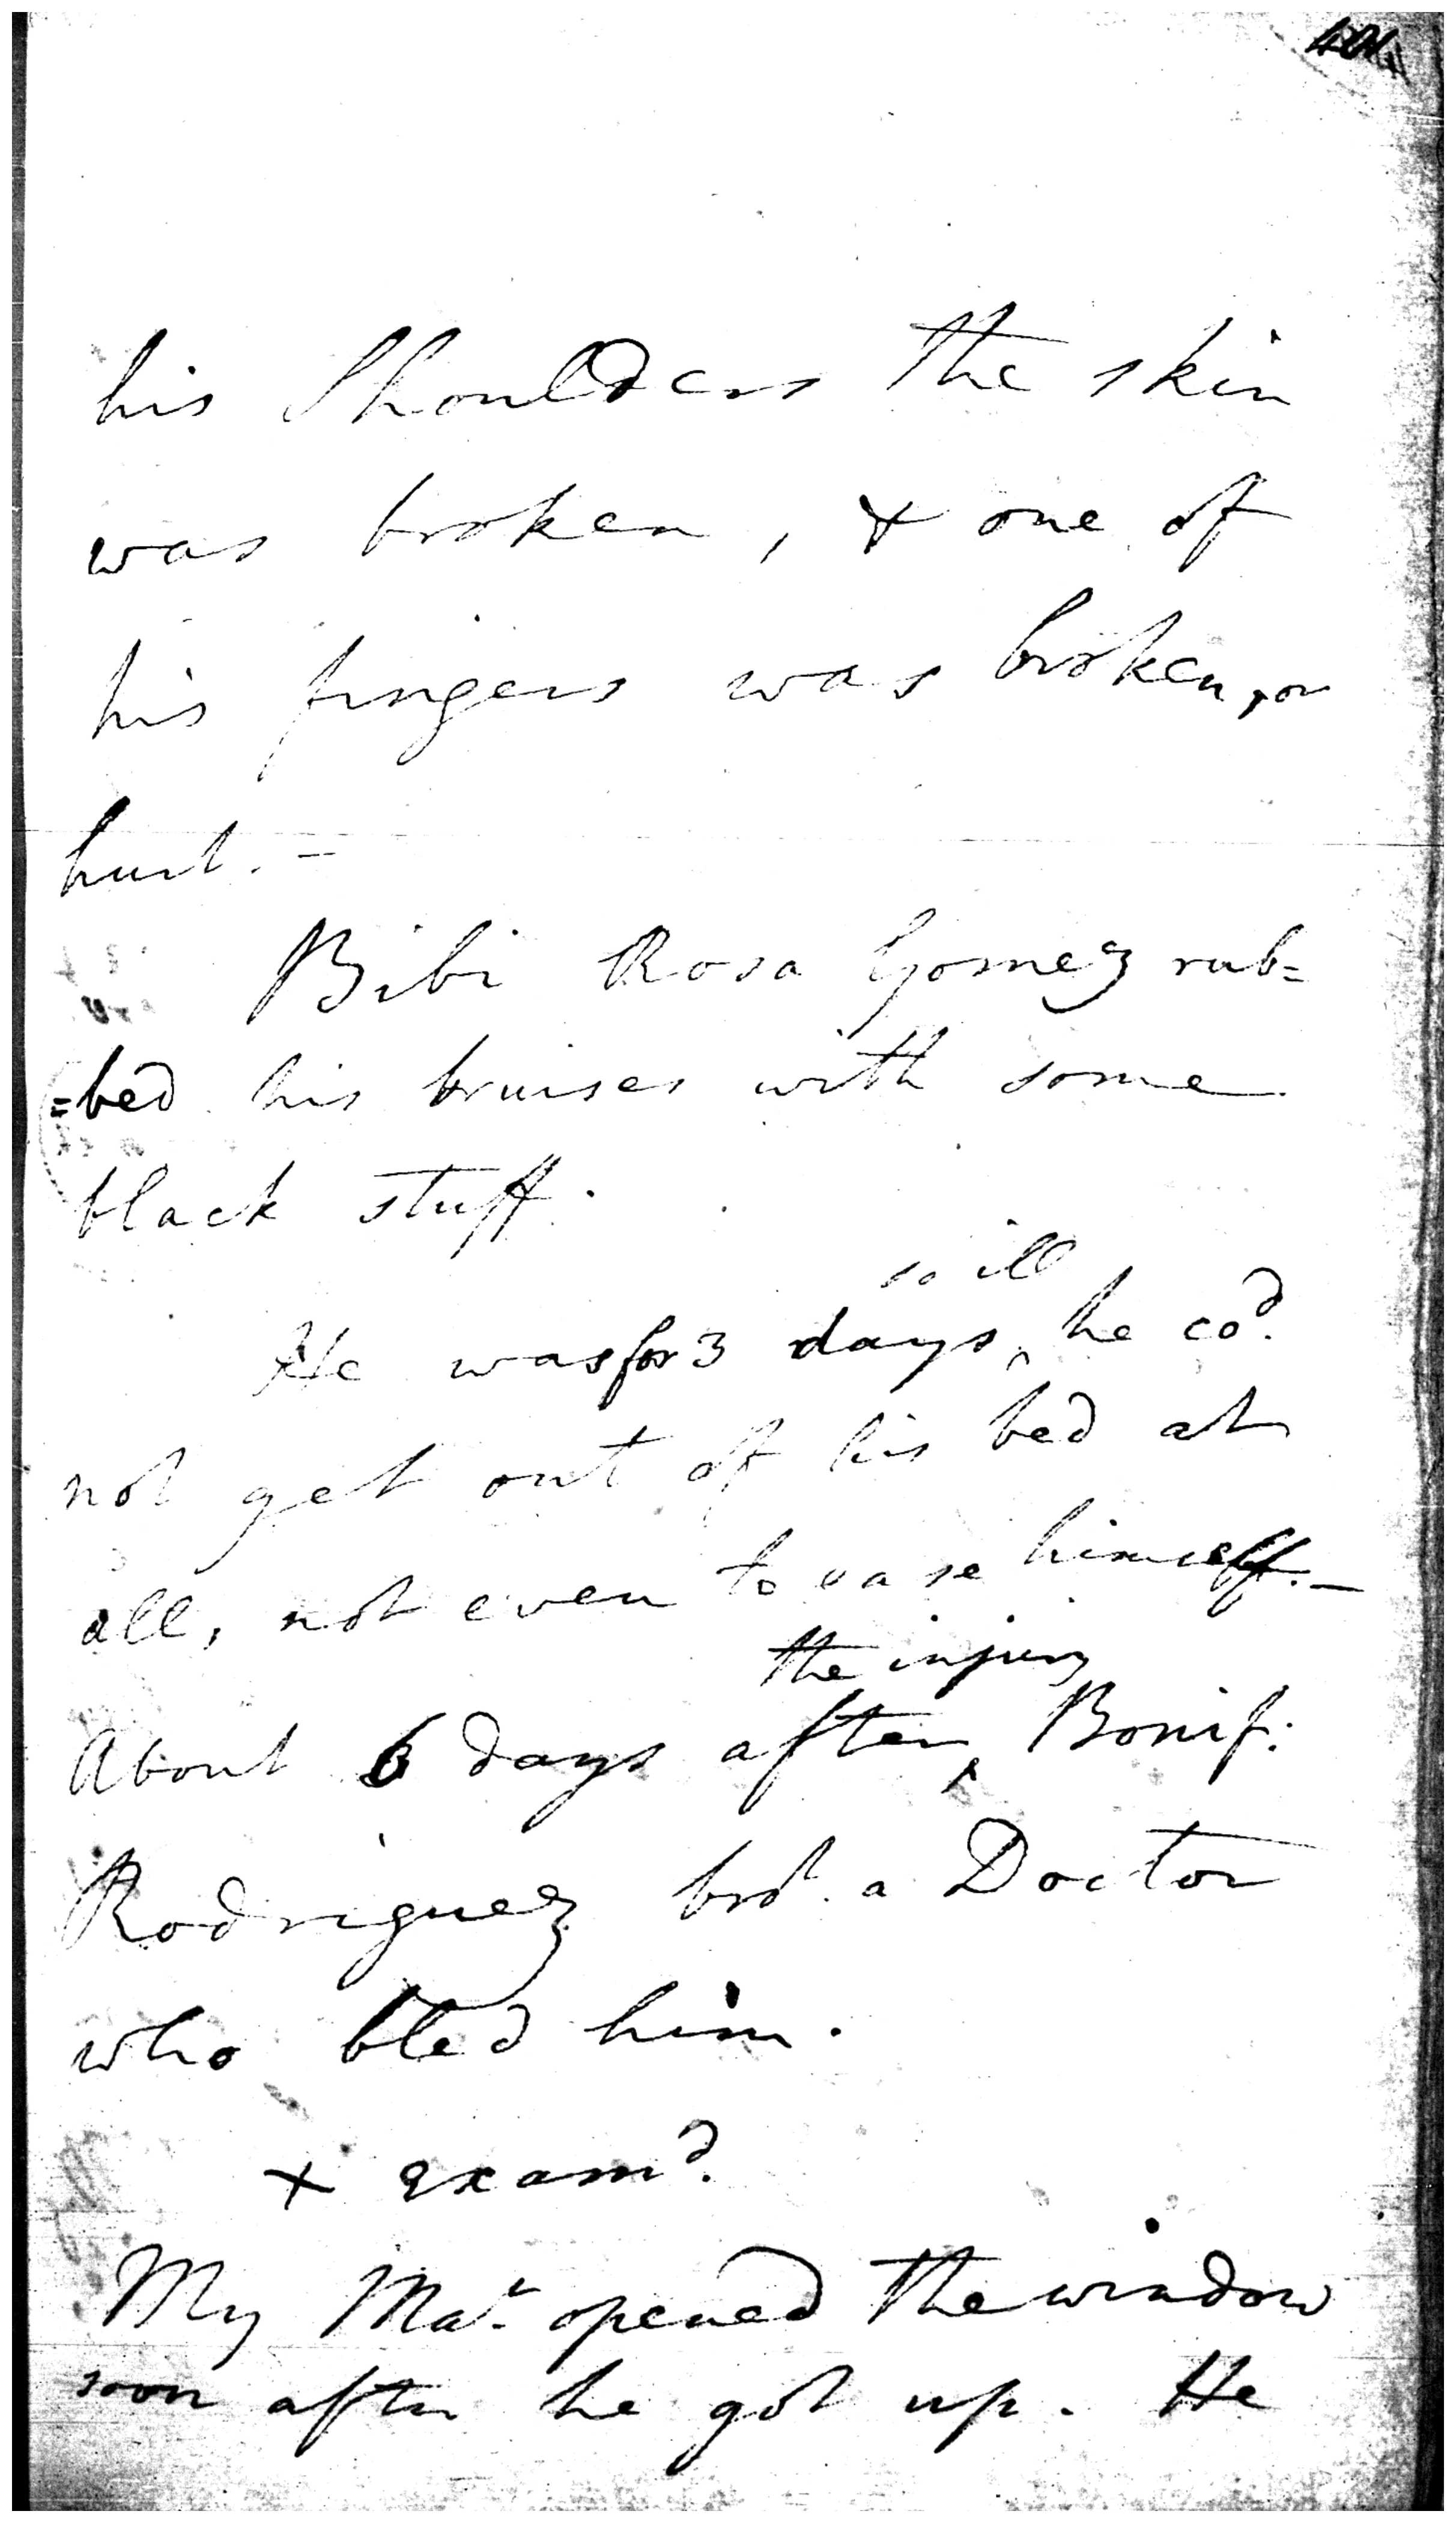 his Shoulders the skin
was broken, & one of
his fingers was broken, or
hurt. -
Bibi Rosa Gomez rub=
=bed his bruises with some
black stuff.
so ill
He was for 3 days ^ he cod.
not get out of his bed at
all, not even to ease himself. -
the injury
About 6 days after ^ Bonif:
Rodriguez brot. a Doctor
who bled him.
x examd.
My Mar. opened the window
soon after he got up. He